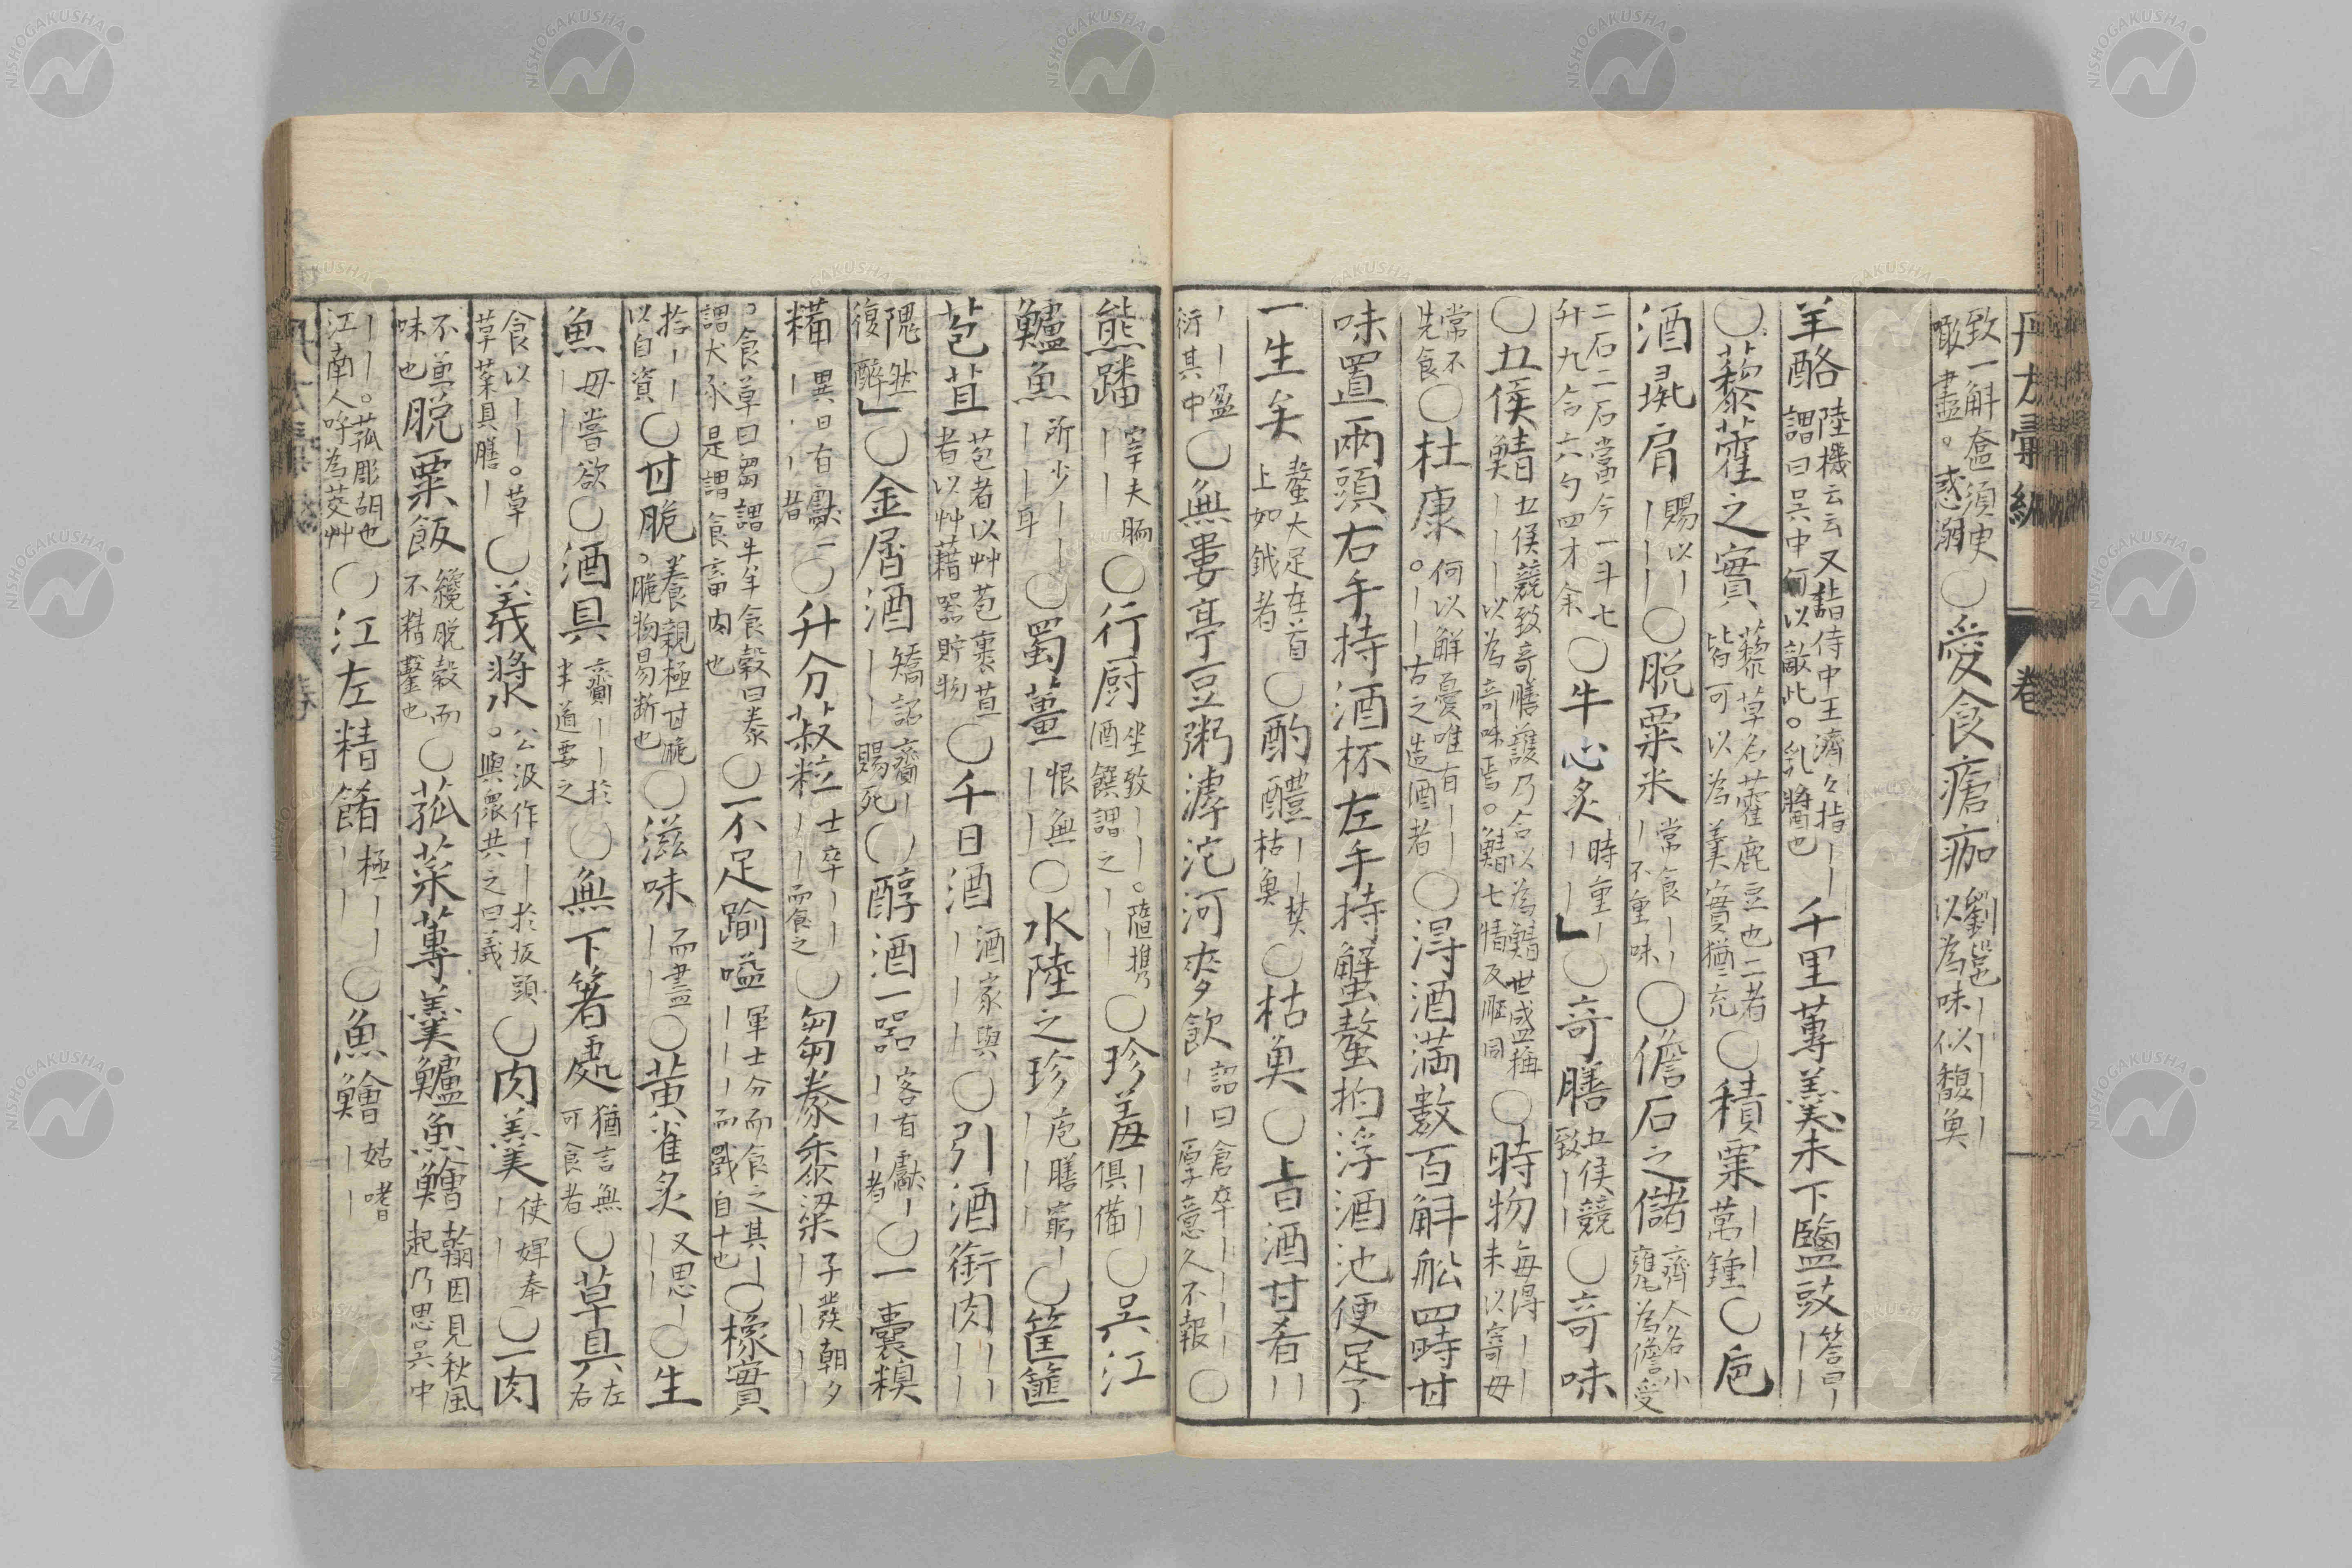 致一斛奩須臾
噉盡。惑溺〇愛食瘡痂劉邕丨丨丨丨
以為味似鰒魚
羊酪陸機云云又詣侍中王濟々指丨丨
謂曰吴中何以敵此。乳醬也千里蓴羹未下鹽豉答曰丨丨丨
〇藜藿之實藜草名藿鹿豆也二者
皆可以為羹實猶充〇積粟丨丨萬鍾〇巵
酒彘肩賜以丨丨丨丨〇脱粟米常食丨丨丨不重味〇儋石之儲齊人名小
甕為儋受
二石二石當今一斗七
升九合六勺四才余〇牛心炙時重丨丨丨」〇奇膳五侯競致丨丨〇奇味
〇五侯鯖五侯競致奇膳護乃合以為鯖世盛稱
丨丨丨以為奇味焉。鯖七情反胵同〇時物每得丨丨未以寄母
常不
先食〇杜康何以解憂唯有丨丨
。丨丨古之造酒者〇得酒滿数百斛舩四時甘
味置兩頭右手持酒杯左手持蟹螯拍浮酒池便足了
一生矣螯大足在首
上如鉞者〇酌醴丨丨焚枯魚〇枯魚〇旨酒甘肴丨丨
丨丨盈
衍其中〇無蔞亭豆粥滹沱河麥飲詔曰倉卒丨丨丨丨
丨丨厚意久不報〇
熊蹯宰夫胹丨丨〇行厨坐致丨丨。隨携
酒饌謂之丨丨〇珍羞丨丨俱備〇吴江
鱸魚所少丨丨丨丨耳〇蜀薑恨無丨丨〇水陸之珍庖膳窮丨丨丨丨〇筐篚
苞苴苞者以艸苞裹苴
者以艸藉器貯物〇千日酒酒家與丨丨丨〇引酒銜肉丨丨丨丨
隗然
復醉」〇金屑酒矯詔齎丨丨丨賜死〇醇酒一器客有獻丨丨丨丨者〇一嚢糗
糒異日有獻一丨丨丨者〇升分菽粒士卒丨丨丨丨而食之〇芻豢黍粱子發朝夕丨丨丨丨
。食草曰芻謂牛羊食穀曰豢
謂犬豕是謂食畜肉也〇不足踰嗌軍士分而食之其丨丨丨丨而戰自十也〇橡實
拾丨丨
以自資〇甘脆養親極甘脆
。脆物易断也〇滋味丨丨而盡〇黄雀炙又思丨丨丨〇生
魚母嘗欲丨丨〇酒具齎丨丨於
半道要之〇無下箸處猶言無
可食者〇草具左右
食以丨丨。草
草菜具膳丨〇義漿公汲作丨丨於坂頭
。與衆共之曰義〇肉羹使婢奉丨丨〇一肉
不兼
味也脱粟飯纔脱穀而
不精鑿也〇菰菜蓴羹鱸魚鱠翰因見秋風
起乃思吴中
丨丨。菰彫胡也
江南人呼為茭艸〇江左精餚極丨丨丨丨〇魚鱠姑嗜丨丨